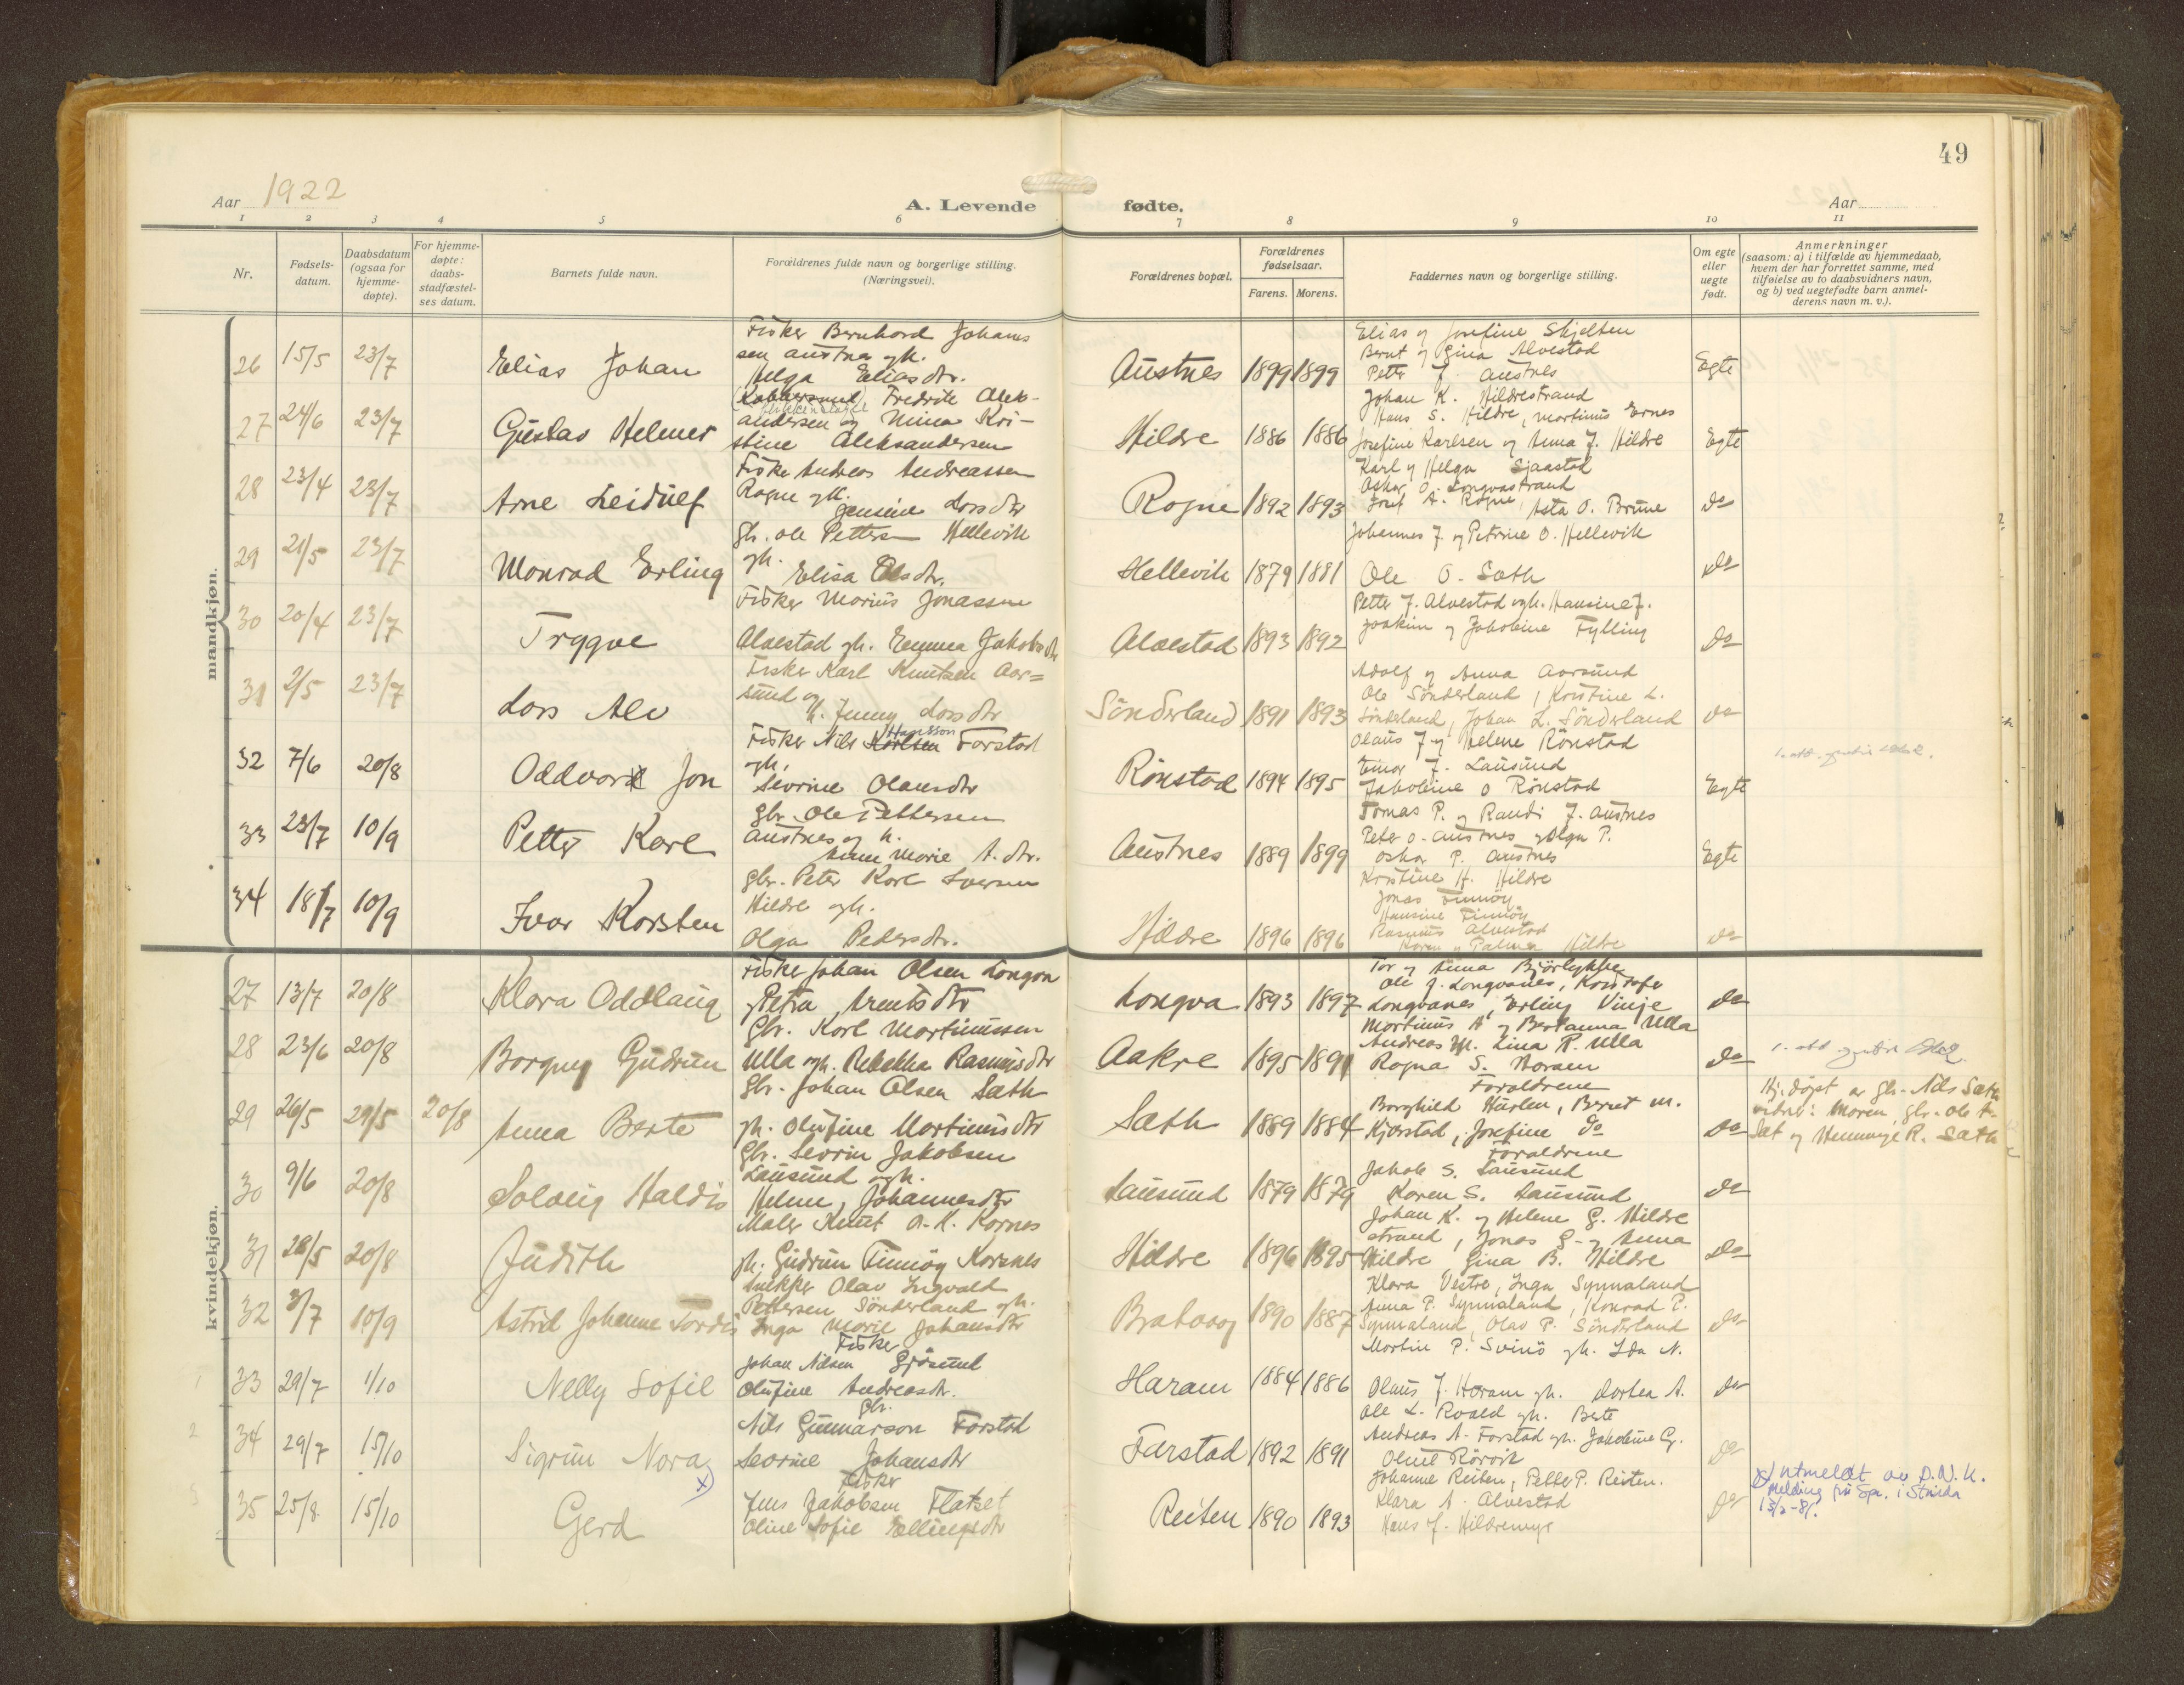 49
Aar 1922
A. Levende fødte.
Aar
1 2 3 4 5 6 7 8 9 10 11
Nr.
Fødsels-
datum.
Daabsdatum
(ogsaa for
hjemme-
døpte).
For hjemme-
døpte:
daabs-
stadfæstel-
ses datum.
Barnets fulde navn.
Forældrenes fulde navn og borgerlige stilling.
(Næringsvei).
Forældrenes bopæl.
Forældrenes
fødselsaar.
Farens. Morens.
Faddernes navn og borgerlige stilling.
Om egte
eller
uegte
født.
Anmerkninger
(saasom: a) i tilfælde av hjemmedaab,
hvem der har forrettet samme, med
tilføielse av to daabsvidners navn,
og b) ved uegtefødte barn anmel-
derens navn m. v.).
mandkjøn.
26 15/5 23/7 Elias Johan
Fisker Bernhard Johans
sen Austnes og h.
Helga Eliasdtr.
Austnes 1899 1899
Elias og Josefine Skjelten
Bernt og Gina Alvestad
Peter J. Austnes
Johan K. Hildrestrand
Egte
27 24/6 23/7 Gustav Helmer
Fredrik Alek-
andersen og Nina Kri-
stine Aleksandersen
Hildre 1886 1886
Hans S. Hildre, Martinus Ernes
Josefine Karlsen og Anna J. Hildre
Egte
28 23/4 23/7 Arne Leidulf
Fisker Andreas Andreassen
Rogne og h.
Jensine Larsdtr
Rogne 1892 1893
Karl og Helga Sjaastad
Oskar O. Longvastrand
Josef A. Rogne, Asta O. Brune
do
29 21/5 23/7 Monrad Erling
gbr. Ole Pettersen Hellevik
og h.
Elisa Olsdtr.
Hellevik 1879 1881
Johannes J. og Petrine O. Hellevik
Ole O. Sæth
do
30 20/4 23/7 Trygve
Fisker Marius Jonassen
Alvestad og h. Emma Jakobsdtr
Alvestad 1893 1892
Petter J. Alvestad og h. Hansine J.
Joakim og Jakobine Fylling
do
31 2/5 23/7 Lars Alv
Fisker Karl Knutsen Aar=
sund og
h. Jenny Larsdtr
Sönderland 1891 1893
Adolf og Anna Aarsund
Ole Sönderland, Kristine L.
Sönderland, Johan L. Sönderland
do
32 7/6 20/8 Oddvar Jon
Hansson
Fisker Nils Karlsen Farstad
og h.
Sevrine Olausdtr
Rönstad 1894 1895
Olaus J og Helene Rönstad
Einar J. Lausund
Jakobine O Rönstad
Egte
33 23/7 10/9 Petter Karl
gbr. Ole Pettersen
Austnes og h.
Anne Marie A. dtr.
Austnes 1889 1899
Tomas P. og Randi J. Austnes
Peter O. Austnes og Olga P.
Oskar P. Austnes
Egte
34 18/7 10/9 Ivar Karsten
gbr. Peter Karl Iversen
Hildre og h.
Olga Pedersdtr.
Hildre 1896 1896
Kristine H. Hildre
Jonas Finnöy
Hansine Finnöy
Rasmus Alvestad
Karen og Palma Hildre
do
kvindekjøn.
27 13/7 20/8 Klara Oddlaug
Fisker Johan Olsen Longva
og Petra Arentsdtr
Longva 1893 1897
Tor og Anna Björlykke
Ole J. Longvanes, Kristofe
Longvanes, Erling Vinje
do
28 23/6 20/8 Borgny Gudrun
Gbr. Karl Martinussen
Ulla og h. Rebekka Rasmusdtr
Aakre 1895 1891
Martinus A og Bertanna Ulla
Andreas M. Lina R. Ulla
Ragna S. Haram
Foraldrene
do
29 26/5 29/5 20/8 Anna Berte
Gbr. Johan Olsen Sæth
og h. Olufine Martinusdtr
Sæth 1889 1884
Borghild Hurlen, Bernt M.
Kjærstad, Josefine do
Foraldrene
do
Hj. döpt av gbr. Nils Sæth
vidne: Moren, gbr. Ole A.
Sæt og Hemmige R. Sæth
30 9/6 20/8 Solveig Haldis
Gbr. Sevrin Jakobsen
Lausund og h.
Helene Johannesdtr
Lausund 1879 1879
Jakob S. Lausund
Karen S. Lausund
do
31 28/5 20/8 Judith
Maler Knut A. K. Kornes
og h. Gudrun Finnöy Korsnes
Hildre 1896 1895
Johan K. og Helene G. Hildre
strand, Jonas G. og Anna
Hildre, Gina B. Hildre
do
32 3/7 10/9 Astrid Johanne Tordis
Snekker Olav Ingvald
Pettersen Sönderland og h.
Inga Marie Johansdtr
Brataag 1890 1887
Klara Vestre, Inga Synnaland
Anna P. Synnaland, Konrad P.
Synnaland, Olav P. Sönderland
do
33 29/7 1/10 Nelly Sofie
Fisker
Johan Nilsen Gjösund
Olufine Andreasdtr.
Haram 1884 1886
Martin P. Svinö og h. Ida N.
Olaus J. Haram og h. Dortea A.
do
34 29/7 15/10 Sigrun Nora x)
gbr.
Nils Gunnarson Farstad
Sevrine Johansdtr
Farstad 1892 1891
Ole L. Roald og h. Berte
Andreas A. Farstad og h. Jakobine G.
Oline Rörvik
do
x) utmeldt av D.N.K.
Melding frå Spr. i Strinda
13/2-81.
35 25/8 15/10 Gerd
Fisker
Jens Jakobsen Flatset
Oline Sofie Ellingsdtr
Reiten 1890 1893
Johanne Reiten, Petter P. Reiten.
Klara A. Alvestad
Hans J. Hildremyr
do